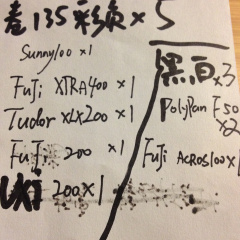 卷135彩负×5
Sunny100×1
FuJi XTRA400×1
Tudor XLX200×1
FuJi 200 ×1
200×1
黑白×3
PolyPan F50
×2
FuJi ACROS100×1